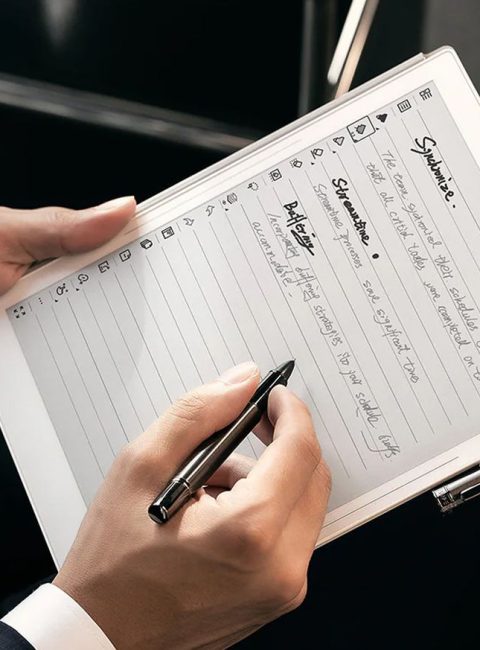 Synchronize.
The team synchronized their schedules
that all critical tasks were completed on t
Streamline
Streamline processes save significant time
Buffering
Incorporating buffering strategies into your schedule
accommodate